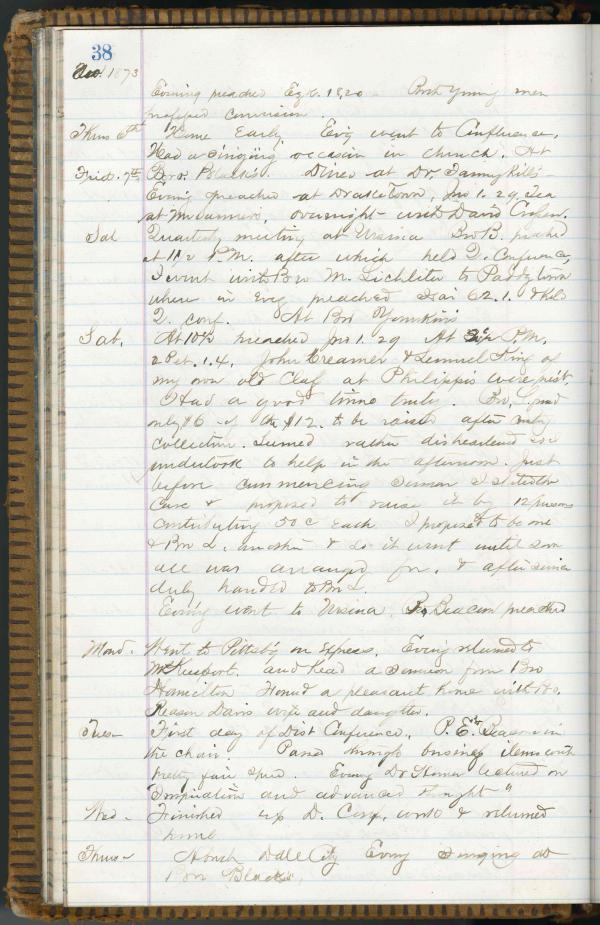 38
1873
Evening preached Ez 6. 18,20 Both young men
professed conversion.
Thurs 6th Home Early Evg went to Conference,
Had a singing occasion in church. At
Frid. 7th Bro. Black's. Dined at Dr. Fannyhill's
Evening preached at Draketown, Jno 1. 29, Tea
at overnight with David
Sat Quarterly meeting at Ursina Bro B. preached
at P.M. after which held Q. Conference,
I went with Bro M. Lichliter to Paddytown
where in Evg preached Isai 62.1. & held
Q. conf. At Bro Younkins'
Sat. At 10½ preached Jno 1. 29 At P.M.
2 Pet. 1.4. John Creamer & Lemuel King of
my own old Class at Philippis were pist.
Had a good time truly. Bro,
only $6 of the $12. to be raised after
collection. Seemed rather disheartened so I
undertook to help in the afternoon. Just
before commencing sermon I stated the
case & proposed to raise it by 12 persons
contributing 50 c each I proposed to be one
& Bro L. another & so it went until soon
all was arranged for, & after
duly handed to Bro L.
Evening went to Ursina. Beacom preached
Mond. Went to Pittsbg on express. Evening returned to
McKeesport. and heard a sermon from Bro
Hamilton Found a pleasant home with Bro.
Reason Davis wife and daughter.
Tues- First day of Dist Conference, P. E. Beacom in
the chair. Passed through business items with
pretty fair speed. Evening Dr Horner lectured on
"Inspiration and advanced thought"
Wed- Finished up D. Conf. work & returned
home
Thurs- Dale City Evening singing at
Bro Black's,